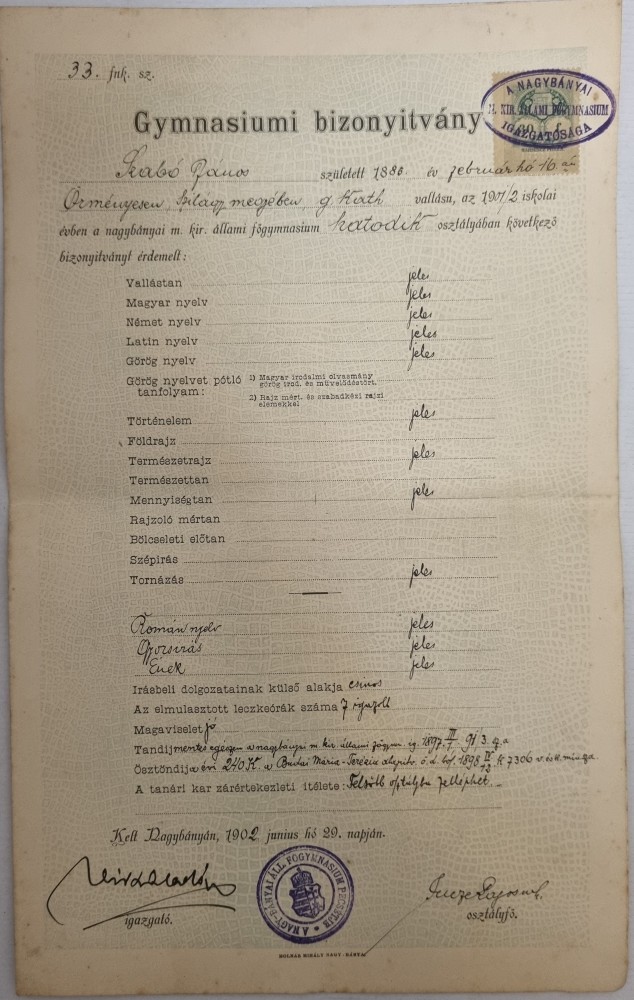 33. fnk. sz.
A NAGYBÁNYAI
M. KIR. ÁLLAMI FŐGYMNASIUM
IGAZGATÓSÁGA
Gymnasiumi bizonyitvány
Szabó János született 188 . év február hó 16 án
Örményesen, Szilágy megyében g. Kath. vallásu, az 1901/2 iskolai
évben a nagybányai m. kir. állami főgymnasium hatodik osztályában következő
bizonyitványt érdemelt:
Vallástan jeles
Magyar nyelv jeles
Német nyelv jeles
Latin nyelv jeles
Görög nyelv jeles
Görög nyelvet pótló tanfolyam: 1) Magyar irodalmi olvasmány
görög irod. és művelődéstört.
2) Rajz mért. és szabadkézi rajzi
elemekkel
Történelem jeles
Földrajz
Természetrajz jeles
Természettan
Mennyiségtan jeles
Rajzoló mértan
Bölcseleti előtan
Szépirás
Tornázás jeles
Román nyelv jeles
Gyorsirás jeles
Ének jeles
Irásbeli dolgozatainak külső alakja csinos
Az elmulasztott leczkeórák száma 7 igazolt
Magaviselet jó
Tandíjmentes egészen a nagybányai m. kir. állami főgym. ig. 1897.
Ösztöndíja évi 240 K. a Budai Mária-Terézia alapitv. 1898 7306
A tanári kar zárértekezleti itélete: Felsőbb osztályba felléphet.
Kelt Nagybányán, 1902 junius hó 29. napján.
igazgató.
A NAGY-BÁNYAI ÁLL. FŐGYMNASIUM PECSÉTJE
osztályfő.
MOLNÁR MIHÁLY NAGY-BÁNYA